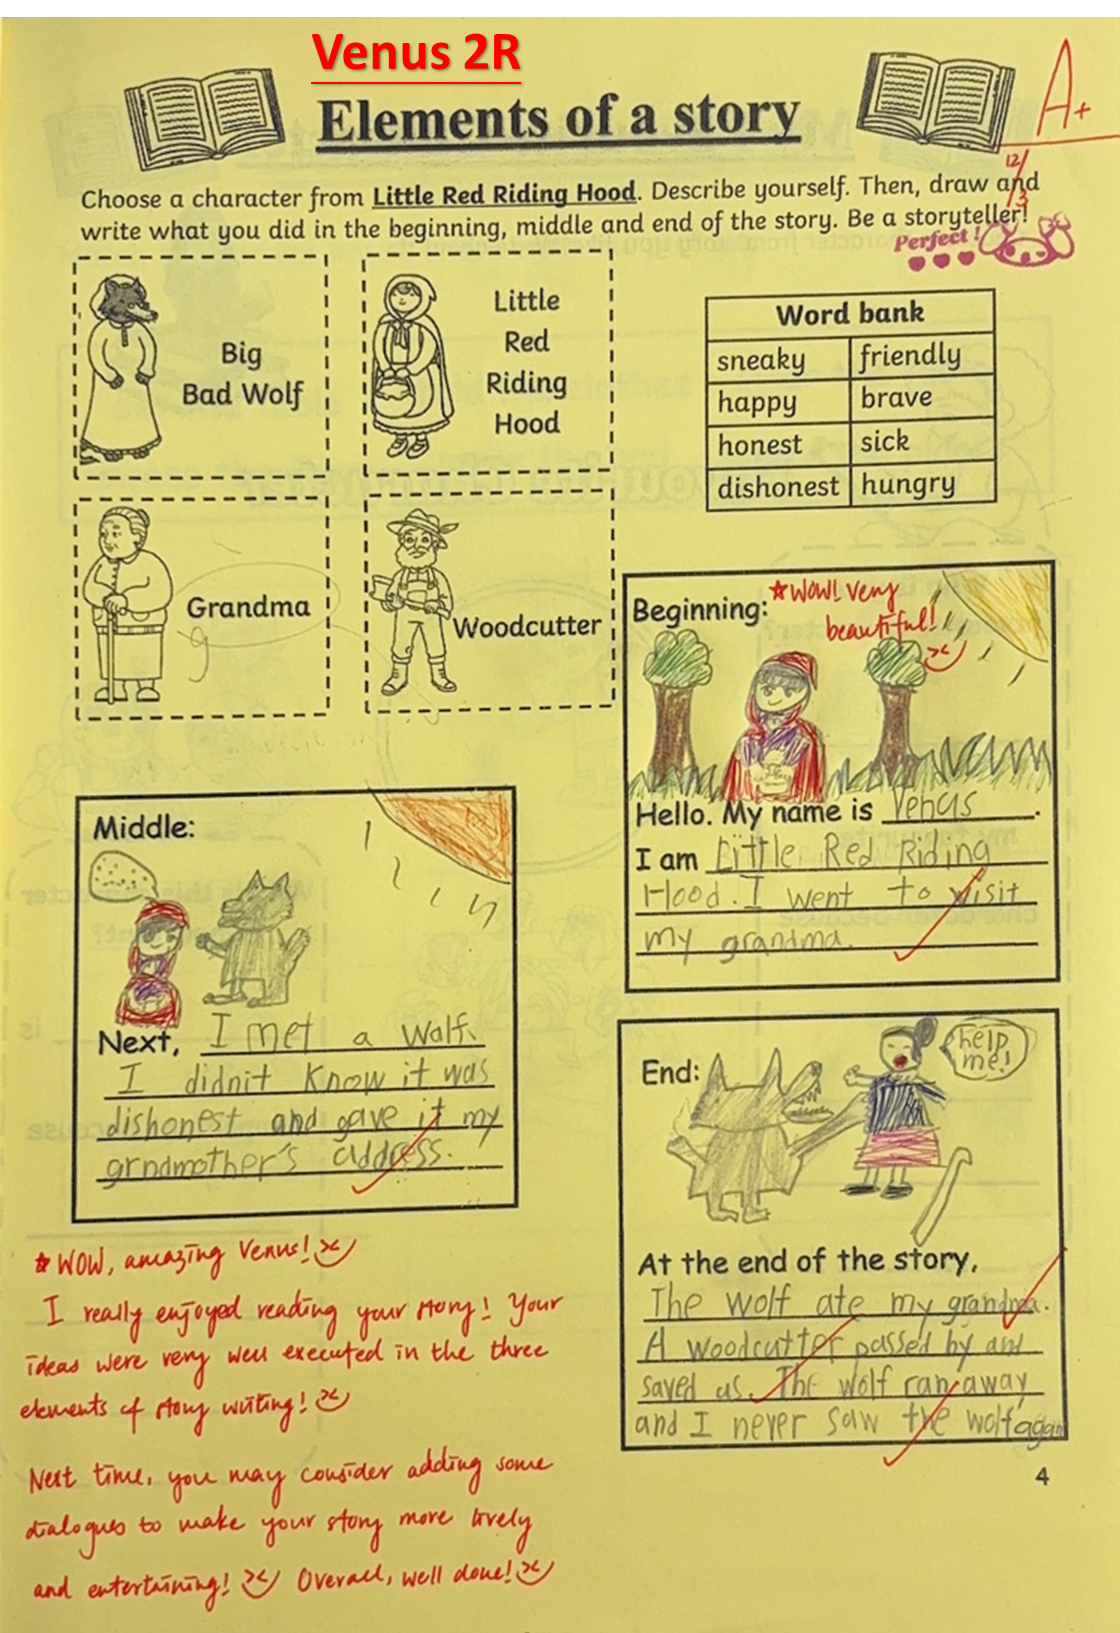 Venus 2R
Elements of a story
A+
12/3
Choose a character from Little Red Riding Hood. Describe yourself. Then, draw and
write what you did in the beginning, middle and end of the story. Be a storyteller!
Perfect!
Big
Bad Wolf
Little
Red
Riding
Hood
Word bank
sneaky friendly
happy brave
honest sick
dishonest hungry
Grandma
Woodcutter
Beginning:
☆Wow! Very
beautiful!
Hello. My name is Venus.
I am Little Red Riding
Hood. I went to visit
my grandma.
Middle:
Next, I met a Wolf.
I didni't know it was
dishonest and gave it my
grndmother's address.
End:
help
me!
At the end of the story,
The wolf ate my grandma.
A woodcutter passed by and
saved us. The wolf ran away
and I never saw the wolf again
4
☆WOW, amazing Venus!
I really enjoyed reading your story! Your
ideas were very well executed in the three
elements of story writing!
Next time, you may consider adding some
dialogues to make your story more lively
and entertaining! Overall, well done!